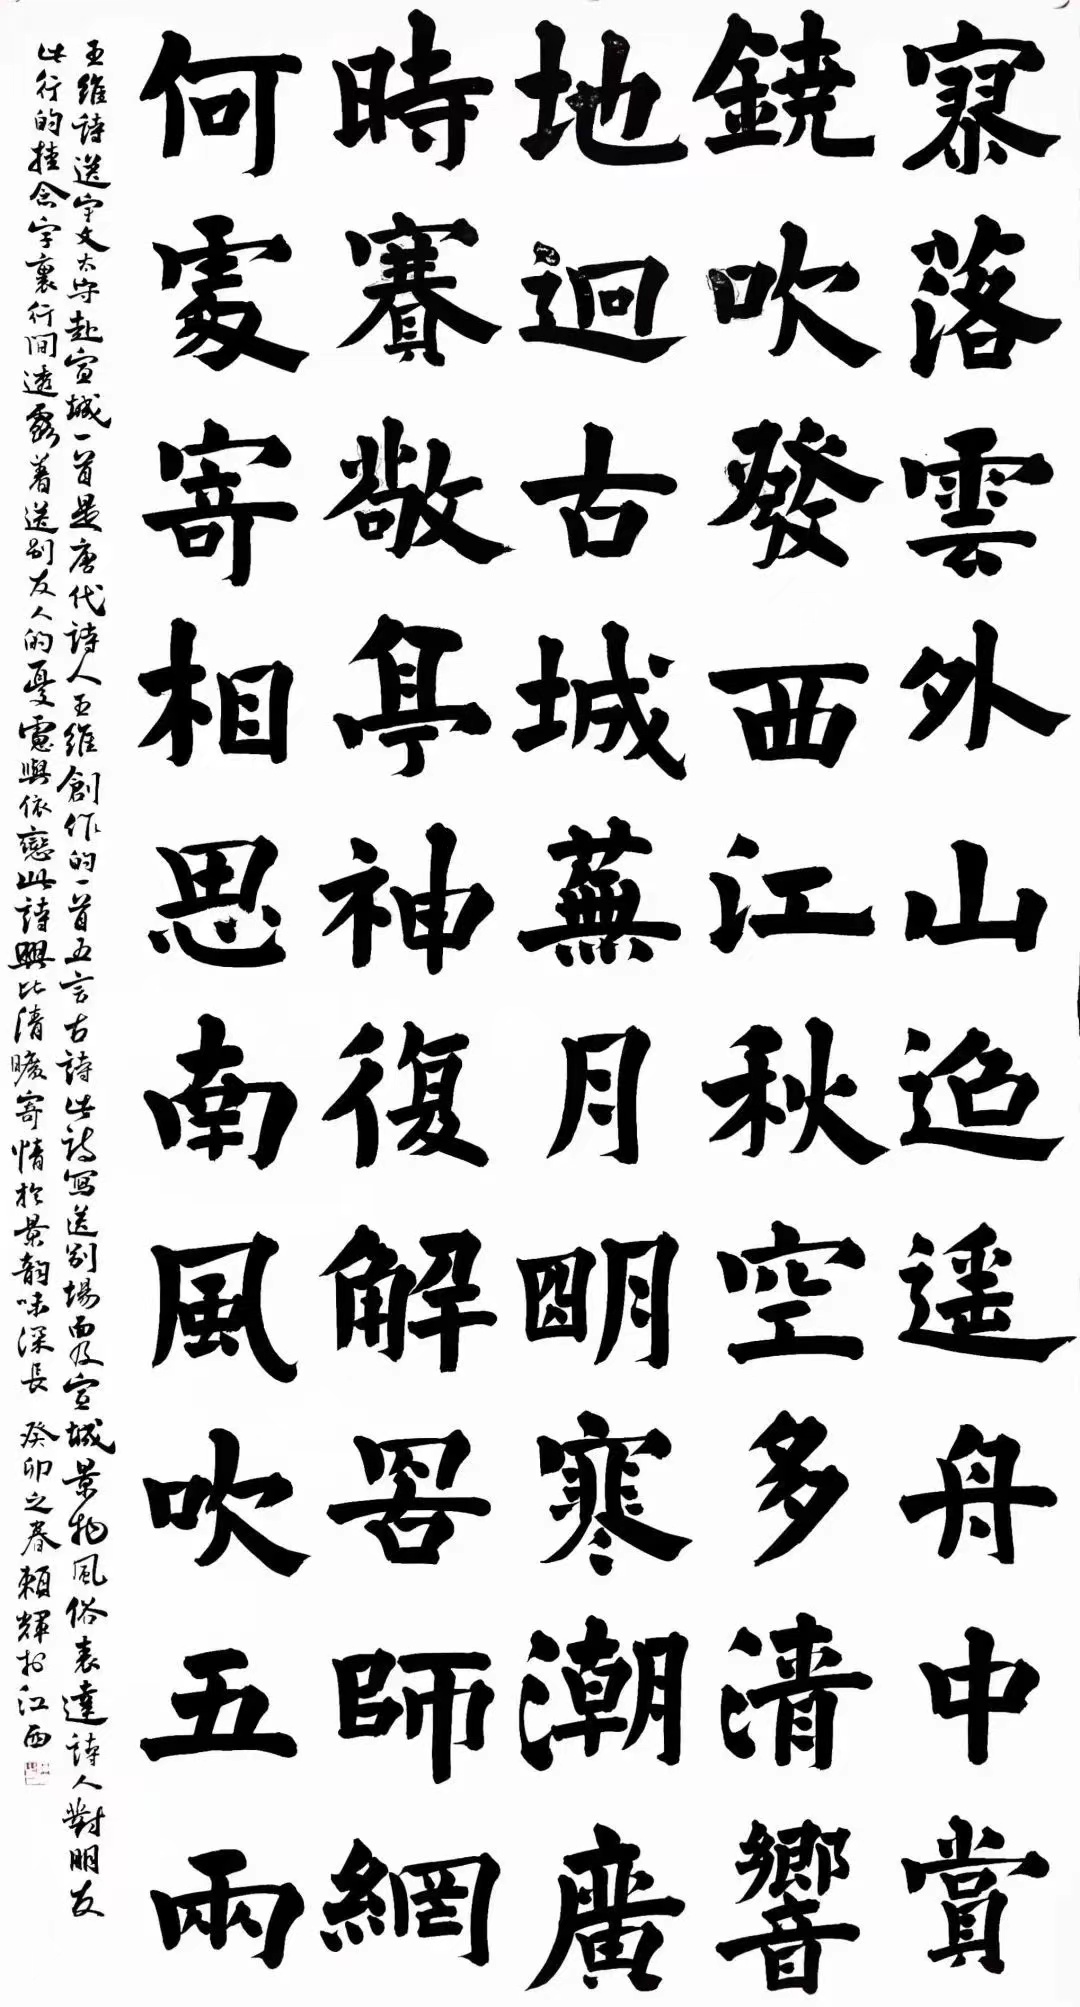 寥落雲外山迢遥舟中賞
鐃吹發西江秋空多清響
地迥古城蕪月明寒潮廣
時賽敬亭神復解罟師網
何處寄相思南風吹五兩
王維詩送宇文太守赴宣城一首是唐代詩人王維創作的一首五言古詩此詩寫送別場面及宣城景物風俗表達詩人對朋友
此行的挂念字裏行間透露着送別友人的憂慮與依戀此詩興比清曠寄情於景韵味深長 癸卯之春賴輝於江西